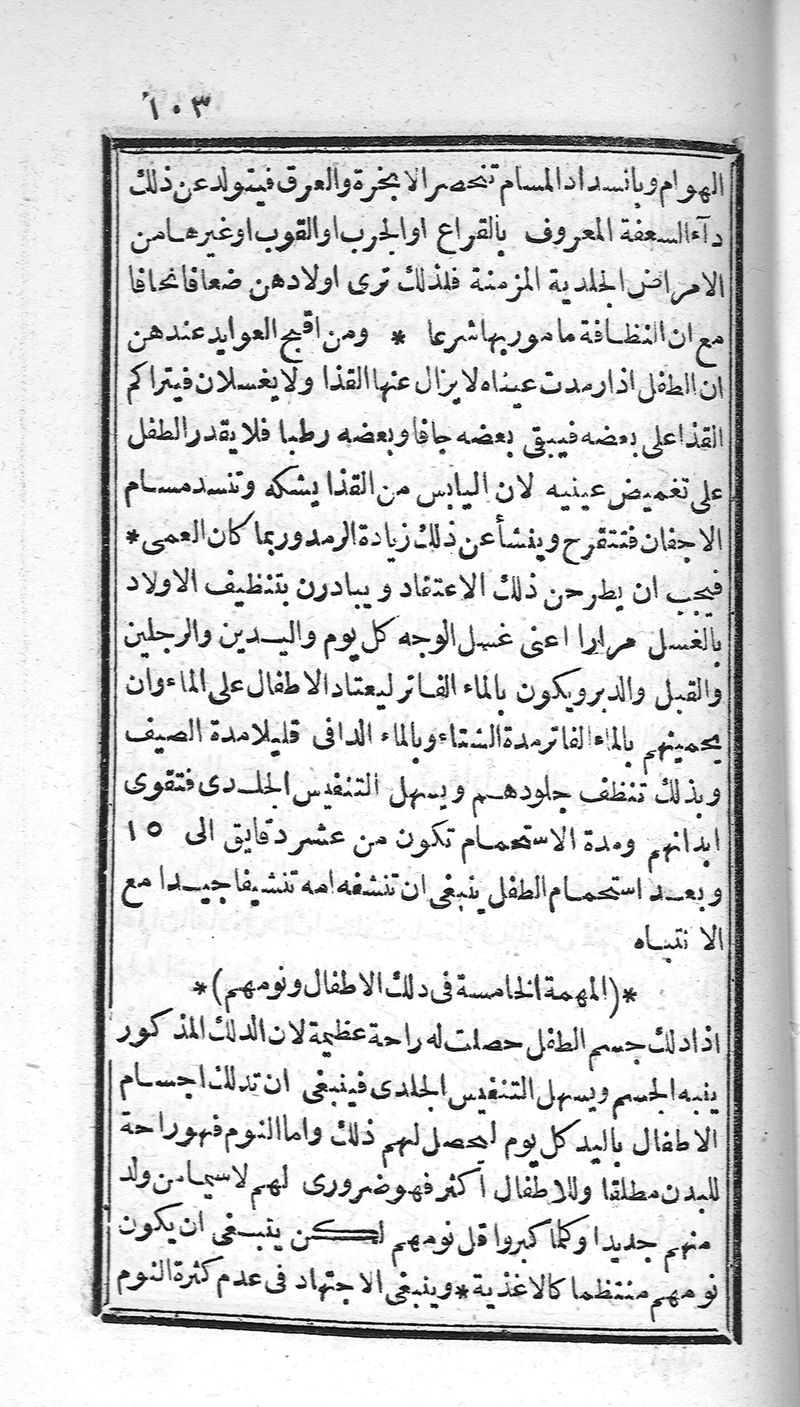 ١٠٣
الهوام وبانسداد المسام تنحصر الابخرة والعرق فيتولد عن ذلك
دآء السعفة المعروف بالقراع او الجرب او القوب او غيرها من
الامراض الجلدية المزمنة فلذلك ترى اولادهن ضعافا نحافا
مع ان النظافة مامور بها شرعا * ومن اقبح العوايد عندهن
ان الطفل اذا رمدت عيناه لا يزال عنها القذا ولا يغسلان فيتراكم
القذا على بعضه فيبقى بعضه جافا وبعضه رطبا فلا يقدر الطفل
على تغميض عينيه لان اليابس من القذا يشكه وتنسد مسام
الاجفان فتتقرح وينشأ عن ذلك زيادة الرمد وربما كان العمى *
فيجب ان يطرحن ذلك الاعتقاد ويبادرن بتنظيف الاولاد
بالغسل مرارا اعنى غسل الوجه كل يوم واليدين والرجلين
والقبل والدبر ويكون بالماء الفاتر ليعتاد الاطفال على الماء وان
يحمينهم بالماء الفاتر مدة الشتاء وبالماء الدافى قليلا مدة الصيف
وبذلك تنظف جلودهم ويسهل التنفيس الجلدى فتقوى
ابدانهم ومدة الاستحمام تكون من عشر دقايق الى ١٥
وبعد استحمام الطفل ينبغى ان تنشفه امه تنشيفا جيدا مع
الانتباه
*(المهمة الخامسة فى دلك الاطفال ونومهم)*
اذا دلك جسم الطفل حصلت له راحة عظيمة لان الدلك المذكور
ينبه الجسم ويسهل التنفيس الجلدى فينبغى ان تدلك اجسام
الاطفال باليد كل يوم ليحصل لهم ذلك واما النوم فهو راحة
للبدن مطلقا وللاطفال اكثر فهو ضرورى لهم لاسيما من ولد
منهم جديدا وكلما كبروا قل نومهم لكن ينبغى ان يكون
نومهم منتظما كالاغذية * وينبغى الاجتهاد فى عدم كثرة النوم